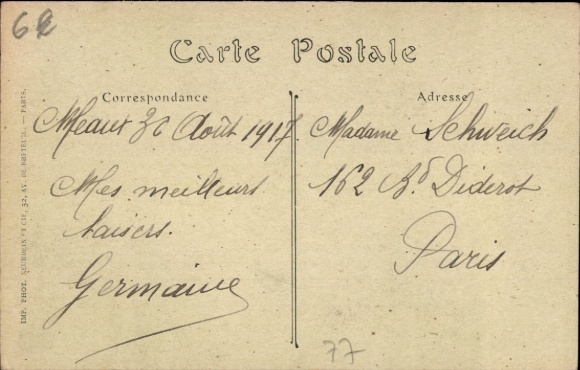 Carte Postale
Correspondance
Meaux 30 Août 1917
Mes meilleurs
baisers.
Germaine
Adresse
Madame Schweich
162 Bd Diderot
Paris
77
IMP. PHOT. NEURDEIN ET CIE, 52, AV. DE BRETEUIL. — PARIS.